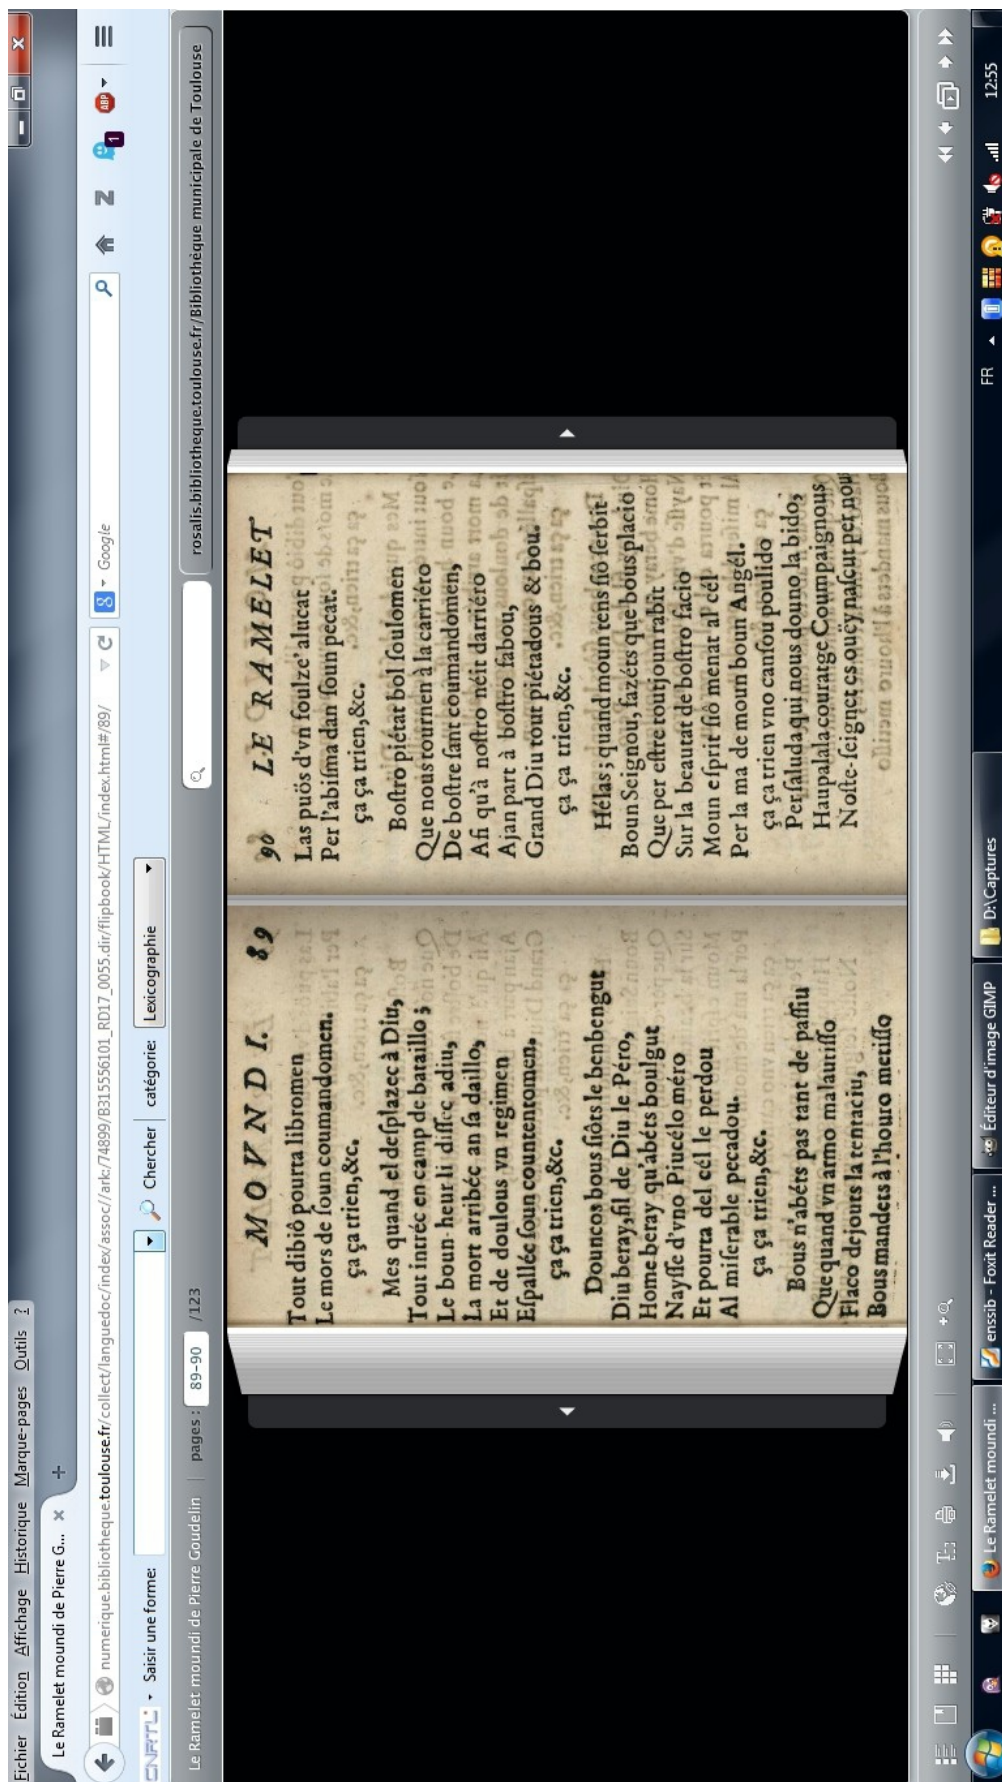 Fichier Édition Affichage Historique Marque-pages Outils ?
Le Ramelet moundi de Pierre G... × +
numerique.bibliotheque.toulouse.fr/collect/languedoc/index/assoc//ark:/74899/B315556101_RD17_0055.dir/flipbook/HTML/index.html#/89/
8 Google
ABP
1
CNRTL Saisir une forme: Chercher catégorie: Lexicographie
Le Ramelet moundi de Pierre Goudelin pages : 89-90 /123
rosalis.bibliotheque.toulouse.fr/Bibliothèque municipale de Toulouse
MOVNDI. 89
Tout dibiô pourta libromen
Le mors de ſoun coumandomen.
ça ça trien,&c.
Mes quand el deſplazec à Diu,
Tout intréc en camp de bataillo;
Le boun-heur li diſſec adiu,
La mort arribéc an ſa daillo,
Et de doulous vn regimen
Eſpalléc ſoun countentomen.
ça ça trien,&c.
Douncos bous ſiôts le benbengut
Diu beray, fil de Diu le Péro,
Home beray qu'abéts boulgut
Nayſſe d'vno Piucélo méro
Et pourta del cél le perdou
Al miſerable pecadou.
ça ça trien,&c.
Bous n'abéts pas tant de paſſiu
Que quand vn armo malautiſſo
Flaco dejouts la tentaciu,
Bous mandets à l'houro metiſſo
90 LE RAMELET
Las puös d'vn ſoulze' alucat
Per l'abiſma dan ſoun pecat.
ça ça trien,&c.
Boſtro piétat bol ſoulomen
Que nous tournen à la carriéro
De boſtre ſant coumandomen,
Afi qu'à noſtro néit darriéro
Ajan part à boſtro fabou,
Grand Diu tout piétadous & bou.
ça ça trien,&c.
Hélas; quand moun tens ſiô ſerbit
Boun Seignou, fazéts que bous placio
Que per eſtre toutjoun rabit
Sur la beautat de boſtro facio
Moun eſprit ſiô menat al cél
Per la ma de moun boun Angél.
ça ça trien vno canſou poulido
Per ſaluda qui nous douno la bido;
Haupalala couratge Coumpaignous
Noſte-ſeignet es oucy naſcut per nou
Le Ramelet moundi ...
enssib - Foxit Reader ...
Éditeur d'image GIMP
D:\Captures
FR
12:55